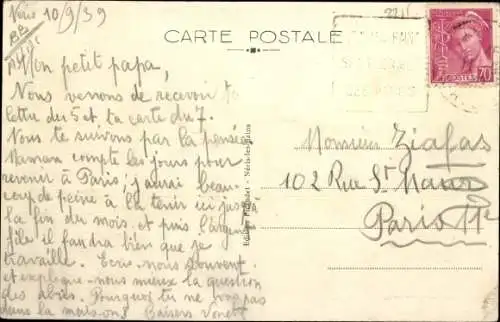 Néris 10/9/39
CARTE POSTALE
Mon petit papa,
Nous venons de recevoir ta
lettre du 5 et ta carte du 7.
Nous te suivons par la pensée
Maman compte les jours pour
revenir à Paris ; j'aurai beau-
coup de peine à la tenir ici jusqu'à
la fin du mois. et puis l'argent
file il faudra bien que je
travaille. Ecris-nous souvent
et explique-nous mieux la question
des abris. Pourquoi tu ne vas pas
dans la maison? Baisers
Monsieur Ziafas
102 Rue St Maur
Paris 11e
POSTES
70